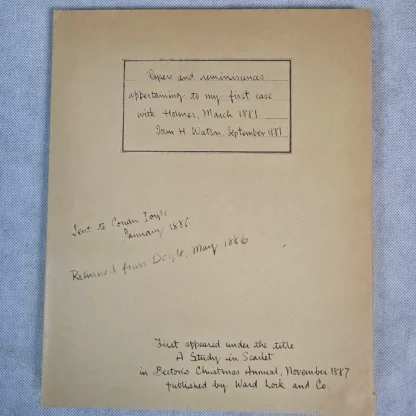 Papers and reminiscences
appertaining to my first case
with Holmes, March 1881
John H Watson. September 1881
Sent to Conan Doyle
January 1886
Returned from Doyle, May 1886
First appeared under the title
A Study in Scarlet
in Beeton's Christmas Annual, November 1887
published by Ward Lock and Co.